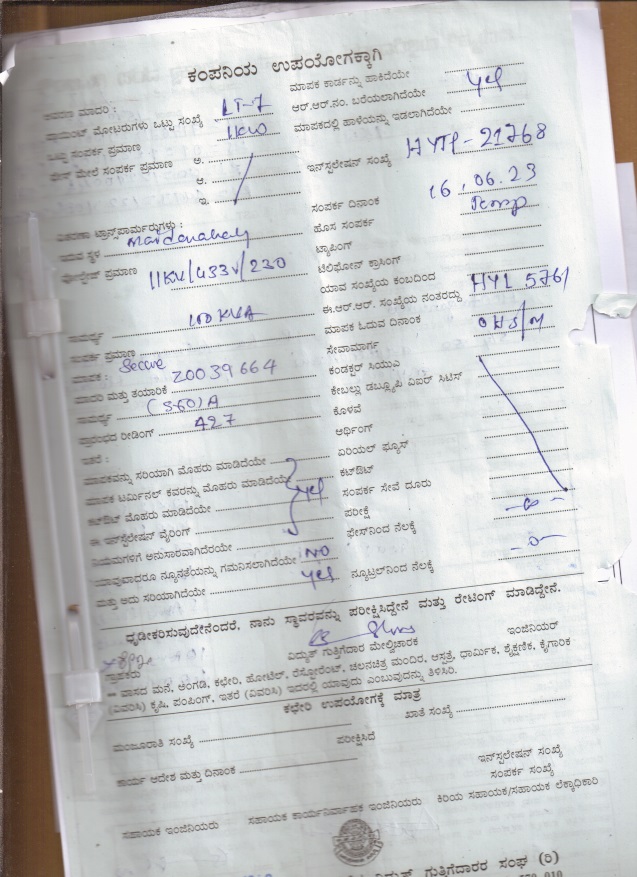 ಕಂಪನಿಯ ಉಪಯೋಗಕ್ಕಾಗಿ
ಮಾಪಕ ಕಾರ್ಡನ್ನು ಹಾಕಿದೆಯೇ
ಮಾದರಿ : LT-7
ಆರ್.ಆರ್.ನಂ. ಬರೆಯಲಾಗಿದೆಯೇ Yes
ಪಾಯಿಂಟ್ ಮೋಟರುಗಳು ಒಟ್ಟು ಸಂಖ್ಯೆ 11KW
ಮಾಪಕದಲ್ಲಿ ಹಾಳೆಯನ್ನು ಇಡಲಾಗಿದೆಯೇ
ಒಟ್ಟು ಸಂಪರ್ಕ ಪ್ರಮಾಣ
ಮೇಲೆ ಸಂಪರ್ಕ ಪ್ರಮಾಣ ಅ.
ಆ.
ಇ.
ಇನ್‌ಸ್ಟಲೇಷನ್ ಸಂಖ್ಯೆ HYTP-21768
ಸಂಪರ್ಕ ದಿನಾಂಕ 16.06.23
ಟ್ರಾನ್ಸ್‌ಪಾರ್ಮರ್‍ಗಳು :
ಹೊಸ ಸಂಪರ್ಕ Temp
ಸ್ಥಳ
ಟ್ಯಾಪಿಂಗ್
ವೋಲ್ಟೇಜ್ ಪ್ರಮಾಣ 11KV/433V/230
ಟೆಲಿಫೋನ್ ಕ್ರಾಸಿಂಗ್
ಯಾವ ಸಂಖ್ಯೆಯ ಕಂಬದಿಂದ HYL 5761
ಸಾಮರ್ಥ್ಯ 100 KVA
ಈ.ಆರ್.ಆರ್. ಸಂಖ್ಯೆಯ ನಂತರದ್ದು
ಸಂಪರ್ಕ ಪ್ರಮಾಣ
ಮಾಪಕ ಓದುವ ದಿನಾಂಕ
ಮಾಪಕ : Secure Z0039664
ಸೇವಾಮಾರ್ಗ
ಮಾದರಿ ಮತ್ತು ತಯಾರಿಕೆ
ಕಂಡಕ್ಟರ್ ಸಿಯುಎ
ಸಾಮರ್ಥ್ಯ (5-60)A
ಕೇಬಲ್ಲು ಡಬ್ಲ್ಯೂಪಿ ಏಐರ್ ಸಿಟಿಸ್
ಪ್ರಾರಂಭದ ರೀಡಿಂಗ್ 427
ಕೊಳವೆ
ಆರ್ಥಿಂಗ್
ಇತರೆ :
ಏರಿಯಲ್ ಫ್ಯೂಸ್
ಮಾಪಕವನ್ನು ಸರಿಯಾಗಿ ಮೊಹರು ಮಾಡಿದೆಯೇ
ಕಟ್‌ಔಟ್
ಮಾಪಕ ಟರ್ಮಿನಲ್ ಕವರನ್ನು ಮೊಹರು ಮಾಡಿದೆಯೇ
ಸಂಪರ್ಕ ಸೇವೆ ದೂರು
ಕಟ್‌ಔಟ್ ಮೊಹರು ಮಾಡಿದೆಯೇ Yes
ಪರೀಕ್ಷೆ
ಈ ಇನ್‌ಸ್ಟಲೇಷನ್ ವೈರಿಂಗ್
ಫೇಸ್‌ನಿಂದ ನೆಲಕ್ಕೆ -0-
ನಿಯಮಗಳಿಗೆ ಅನುಸಾರವಾಗಿದೆಯೇ
ಯಾವುದಾದರೂ ನ್ಯೂನತೆಯನ್ನು ಗಮನಿಸಲಾಗಿದೆಯೇ NO
ನ್ಯೂಟ್ರಲ್‌ನಿಂದ ನೆಲಕ್ಕೆ -0-
ಮತ್ತು ಅದು ಸರಿಯಾಗಿದೆಯೇ Yes
ಧೃಡೀಕರಿಸುವುದೇನೆಂದರೆ, ನಾನು ಸ್ಥಾವರವನ್ನು ಪರೀಕ್ಷಿಸಿದ್ದೇನೆ ಮತ್ತು ರೇಟಿಂಗ್ ಮಾಡಿದ್ದೇನೆ.
ಗ್ರಾಹಕರು ವಿದ್ಯುತ್ ಗುತ್ತಿಗೆದಾರ ಮೇಲ್ವಿಚಾರಕ ಇಂಜಿನಿಯರ್
ವಾಸದ ಮನೆ, ಅಂಗಡಿ, ಕಛೇರಿ, ಹೋಟೆಲ್, ರೆಸ್ಟೋರೆಂಟ್, ಚಲನಚಿತ್ರ ಮಂದಿರ, ಆಸ್ಪತ್ರೆ, ಧಾರ್ಮಿಕ, ಶೈಕ್ಷಣಿಕ, ಕೈಗಾರಿಕ
(ವಿವರಿಸಿ) ಕೃಷಿ, ಪಂಪಿಂಗ್, ಇತರೆ (ವಿವರಿಸಿ) ಇದರಲ್ಲಿ ಯಾವುದು ಎಂಬುವುದನ್ನು ತಿಳಿಸಿರಿ.
ಕಛೇರಿ ಉಪಯೋಗಕ್ಕೆ ಮಾತ್ರ
ಖಾತೆ ಸಂಖ್ಯೆ
ಮಂಜೂರಾತಿ ಸಂಖ್ಯೆ
ಪರೀಕ್ಷಿಸಿದೆ
ಕಾರ್ಯ ಆದೇಶ ಮತ್ತು ದಿನಾಂಕ
ಇನ್‌ಸ್ಟಲೇಷನ್ ಸಂಖ್ಯೆ
ಸಂಪರ್ಕ ಸಂಖ್ಯೆ
ಸಹಾಯಕ ಇಂಜಿನಿಯರು ಸಹಾಯಕ ಕಾರ್ಯನಿರ್ವಾಹಕ ಇಂಜಿನಿಯರು ಕಿರಿಯ ಸಹಾಯಕ/ಸಹಾಯಕ ಲೆಕ್ಕಾಧಿಕಾರಿ
ಗುತ್ತಿಗೆದಾರರ ಸಂಘ (ರಿ)